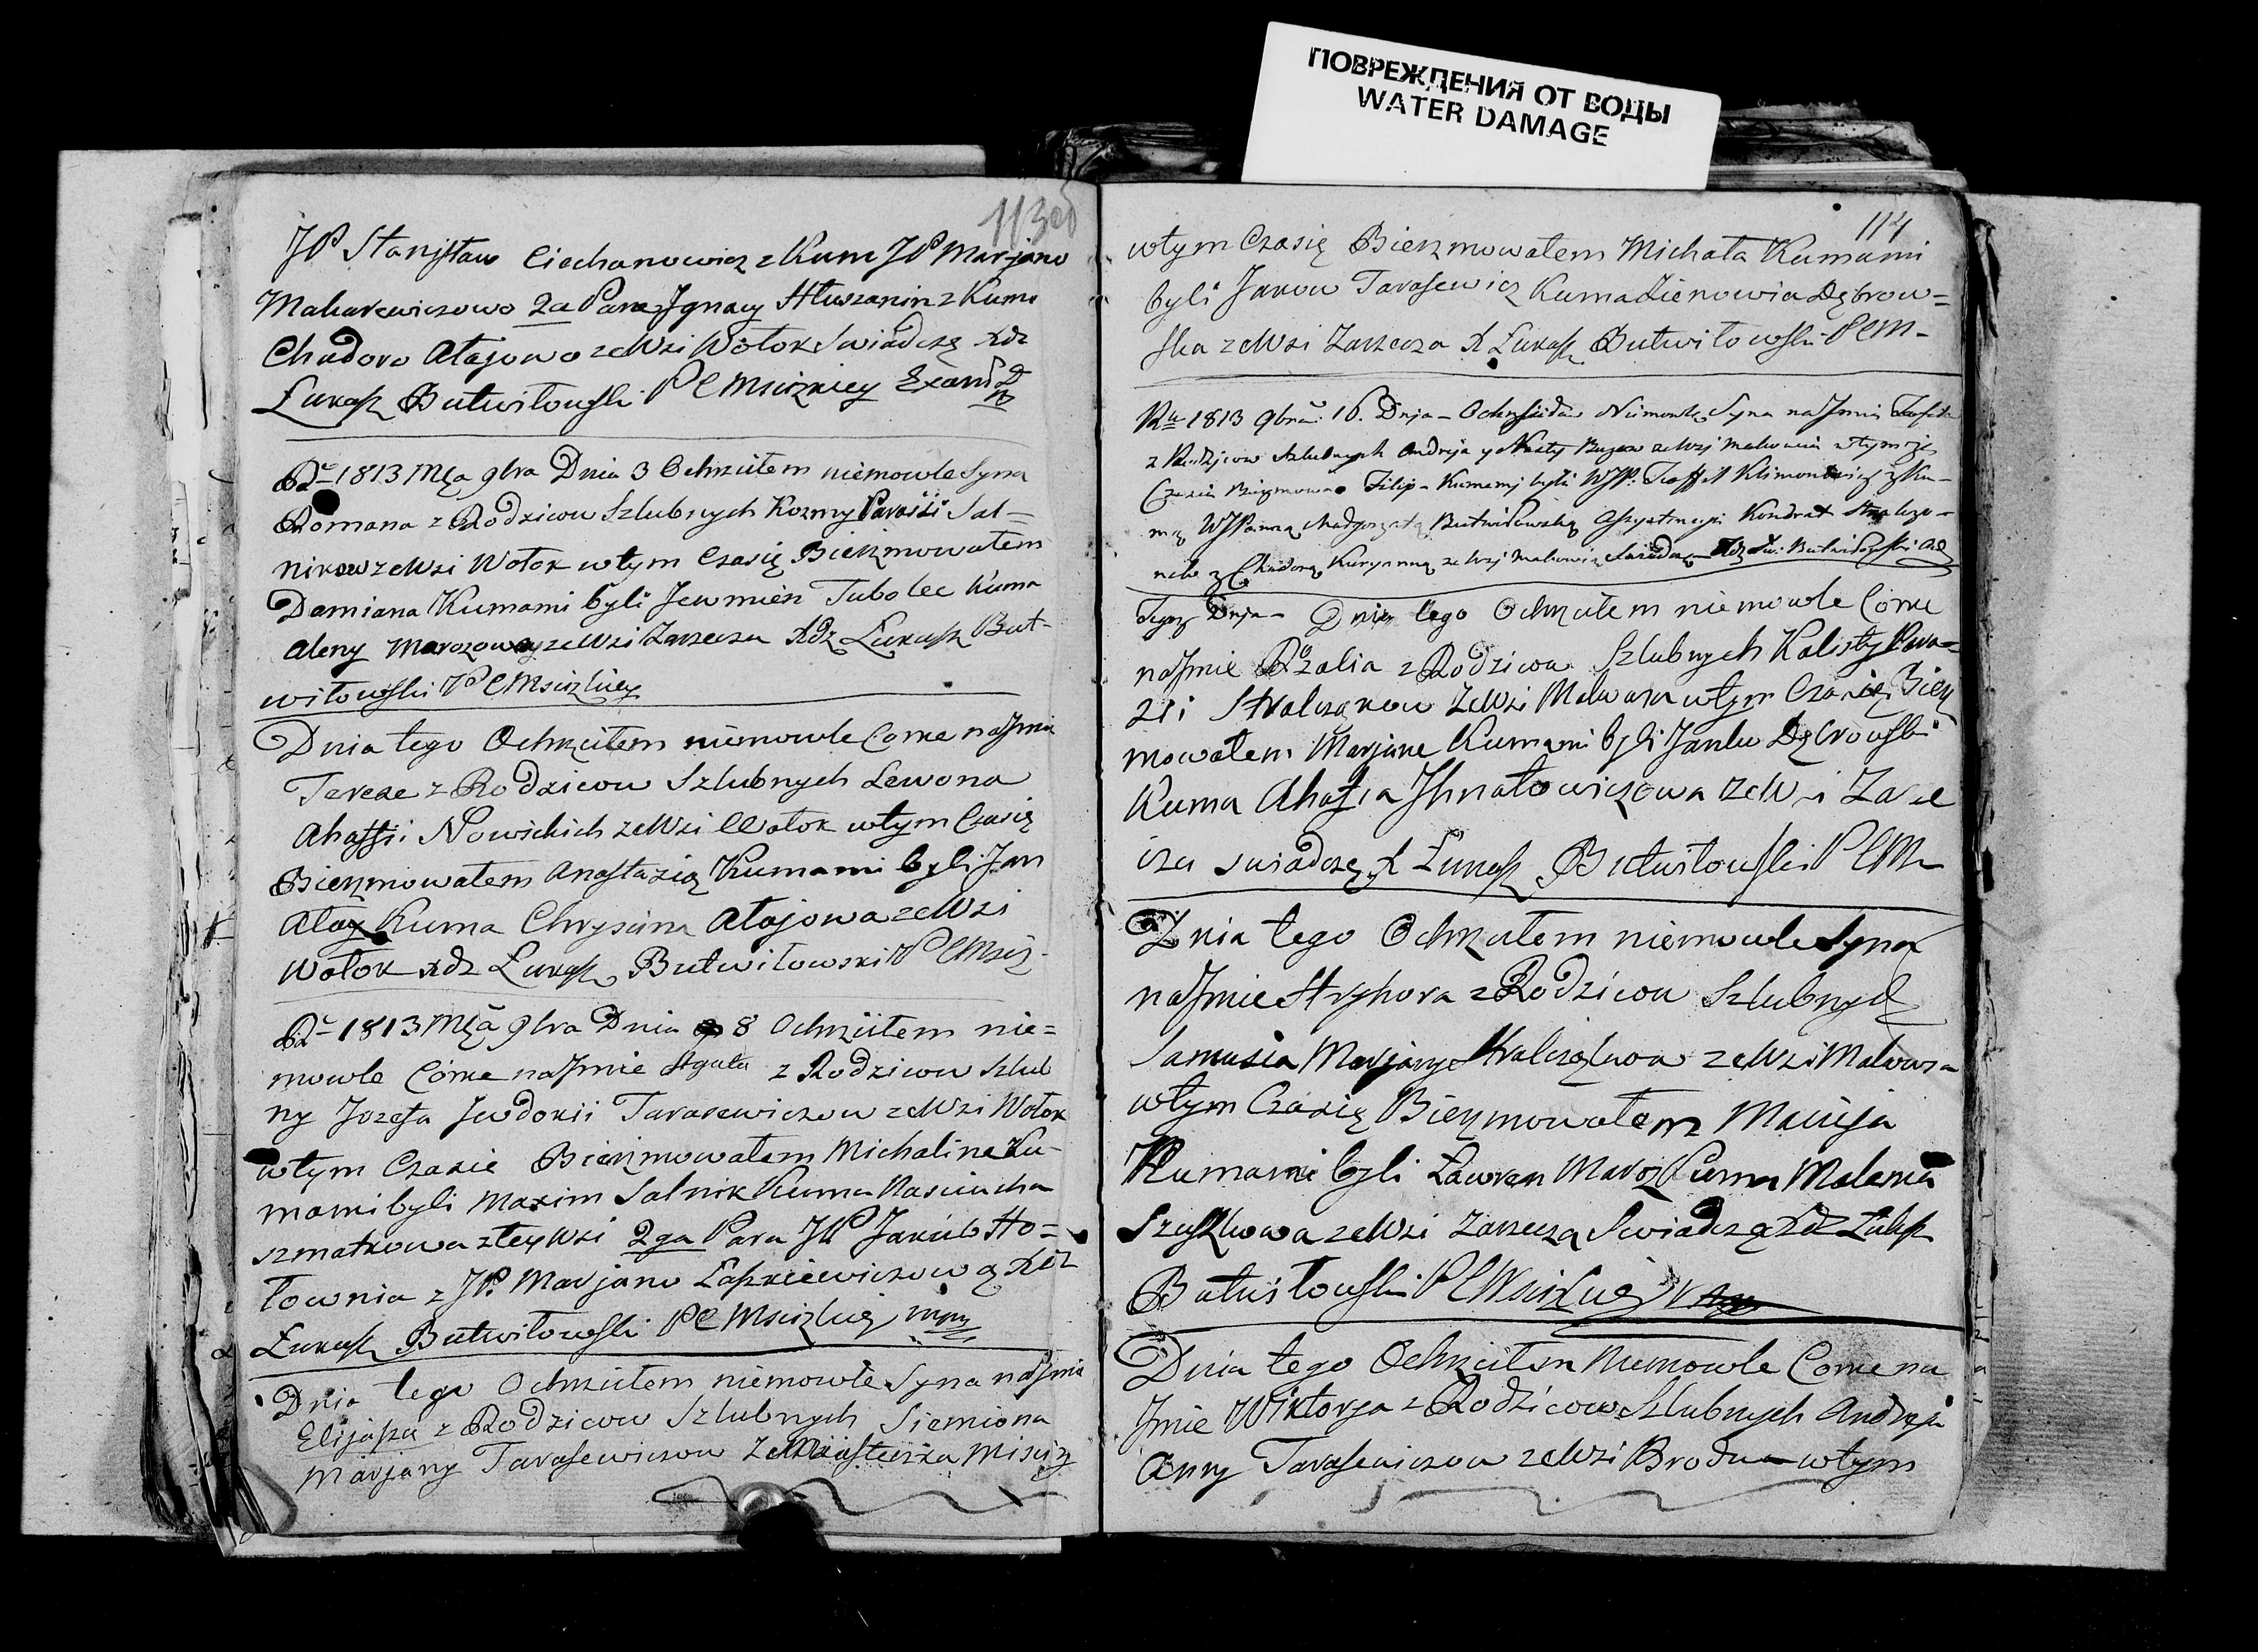 ПОВРЕЖДЕНИЯ ОТ ВОДЫ
WATER DAMAGE
113об
JP Stanisław Ciechanowicz z Kum JP Marjano
Makarewiczowo 2a Para Jgnacy Hłuszanin z Kumo
Chudoro Ałajowo ze Wsi Wołok Swiadczę Xdz
Łukasz Butwiłowski P C Mscizkiey
R 1813 Mca 9bra Dnia 3 Ochrzciłem niemowle Syna
Romana z Rodzicow Szlubnych Kozmy Paraski Sal=
nikow ze Wsi Wołok w tym Czasię Bierzmowałem
Damiana Kumami byli Jewmien Tubolec Kuma
Aleny Marozowey ze Wsi Zarzecza Xdz Łukasz But-
wiłowski P C Mscizkiey
Dnia tego Ochrzciłem niemowle Corke na Jmia
Tereze z Rodzicow Szlubnych Lewona
Ahaffii Nowickich ze Wsi Wołok w tym Czasię
Bierzmowałem Anastazią Kumami byli Jan
Ałay Kuma Chrysima Ałajowa ze Wsi
Wołok Xdz Łukasz Butwiłowski P C Mscis
R 1813 Mca 9bra Dnia 8 Ochrzciłem nie=
mowle Córke na Jmie Agata z Rodzicow Szlub
ny Jozefa Jewdokii Tarasewiczow ze Wsi Wołok
w tym Czasie Bierzmowałem Michaline Ku-
mami byli Maxim Salnik Kuma Nasciucha
szmatkowa z tey Wsi 2ga Para JP Jakub Ho=
łownia z JP. Marjano Łapkiewiczową Xdz
Łukasz Butwiłowski P C Mscizkiey mpp
Dnia tego Ochrzciłem niemowle Syna na Jmia
Elijasza z Rodzicow Szlubnych Siemiona
Marjany Tarasewiczow ze Miasteczka Mscisz
114
w tym Czasię Bierzmowałem Michała Kumami
byli Jakow Tarasewicz Kuma Zienowia Dąbrow=
ska ze Wsi Zarzecza X Łukasz Butwiłowski P C M-
Ru 1813 9bra 16. Dnia - Niemowle Syna na Jmie
z Rodzicow Szlubnych Andrzeja y Nasty ze Wsi w tym że
Czasie Filip - Kumami byli WJP. Klimontowicz z Ku-
mą WJPanną Małgorzatą Butwiłowską Assystencyi Kondrat
z Chudorą ze Wsi Swiadczę - Xdz
Tegoż Dnia - Dnia tego Ochrzciłem niemowle Corke
na Jmie Rozalia z Rodzicow Szlubnych Kalisty Para=
zii Stralczakow ze Wsi w tym Czasię Bierz
mowałem Marjane Kumami byli Janku Dąbrowski
Kuma Ahafia Jhnatowiczowa ze Wsi Zarze
cza swiadczę X Łukasz Butwiłowski P C M
Dnia tego Ochrzciłem niemowle Syna
na Jmie Hryhora z Rodzicow Szlubnych
Samusia Marjany ze Wsi
w tym Czasię Bierzmowałem Macieja
Kumami byli Ławren Maroz Kuma
ze Wsi Zarzecza Swiadczą Xdz Łukasz
Butwiłowski P C Mscizkiey
Dnia tego Ochrzciłem Niemowle Corke na
Jmie Wiktorya z Rodzicow Szlubnych Andrzeja
Anny Tarasewiczow ze Wsi Brodu w tym